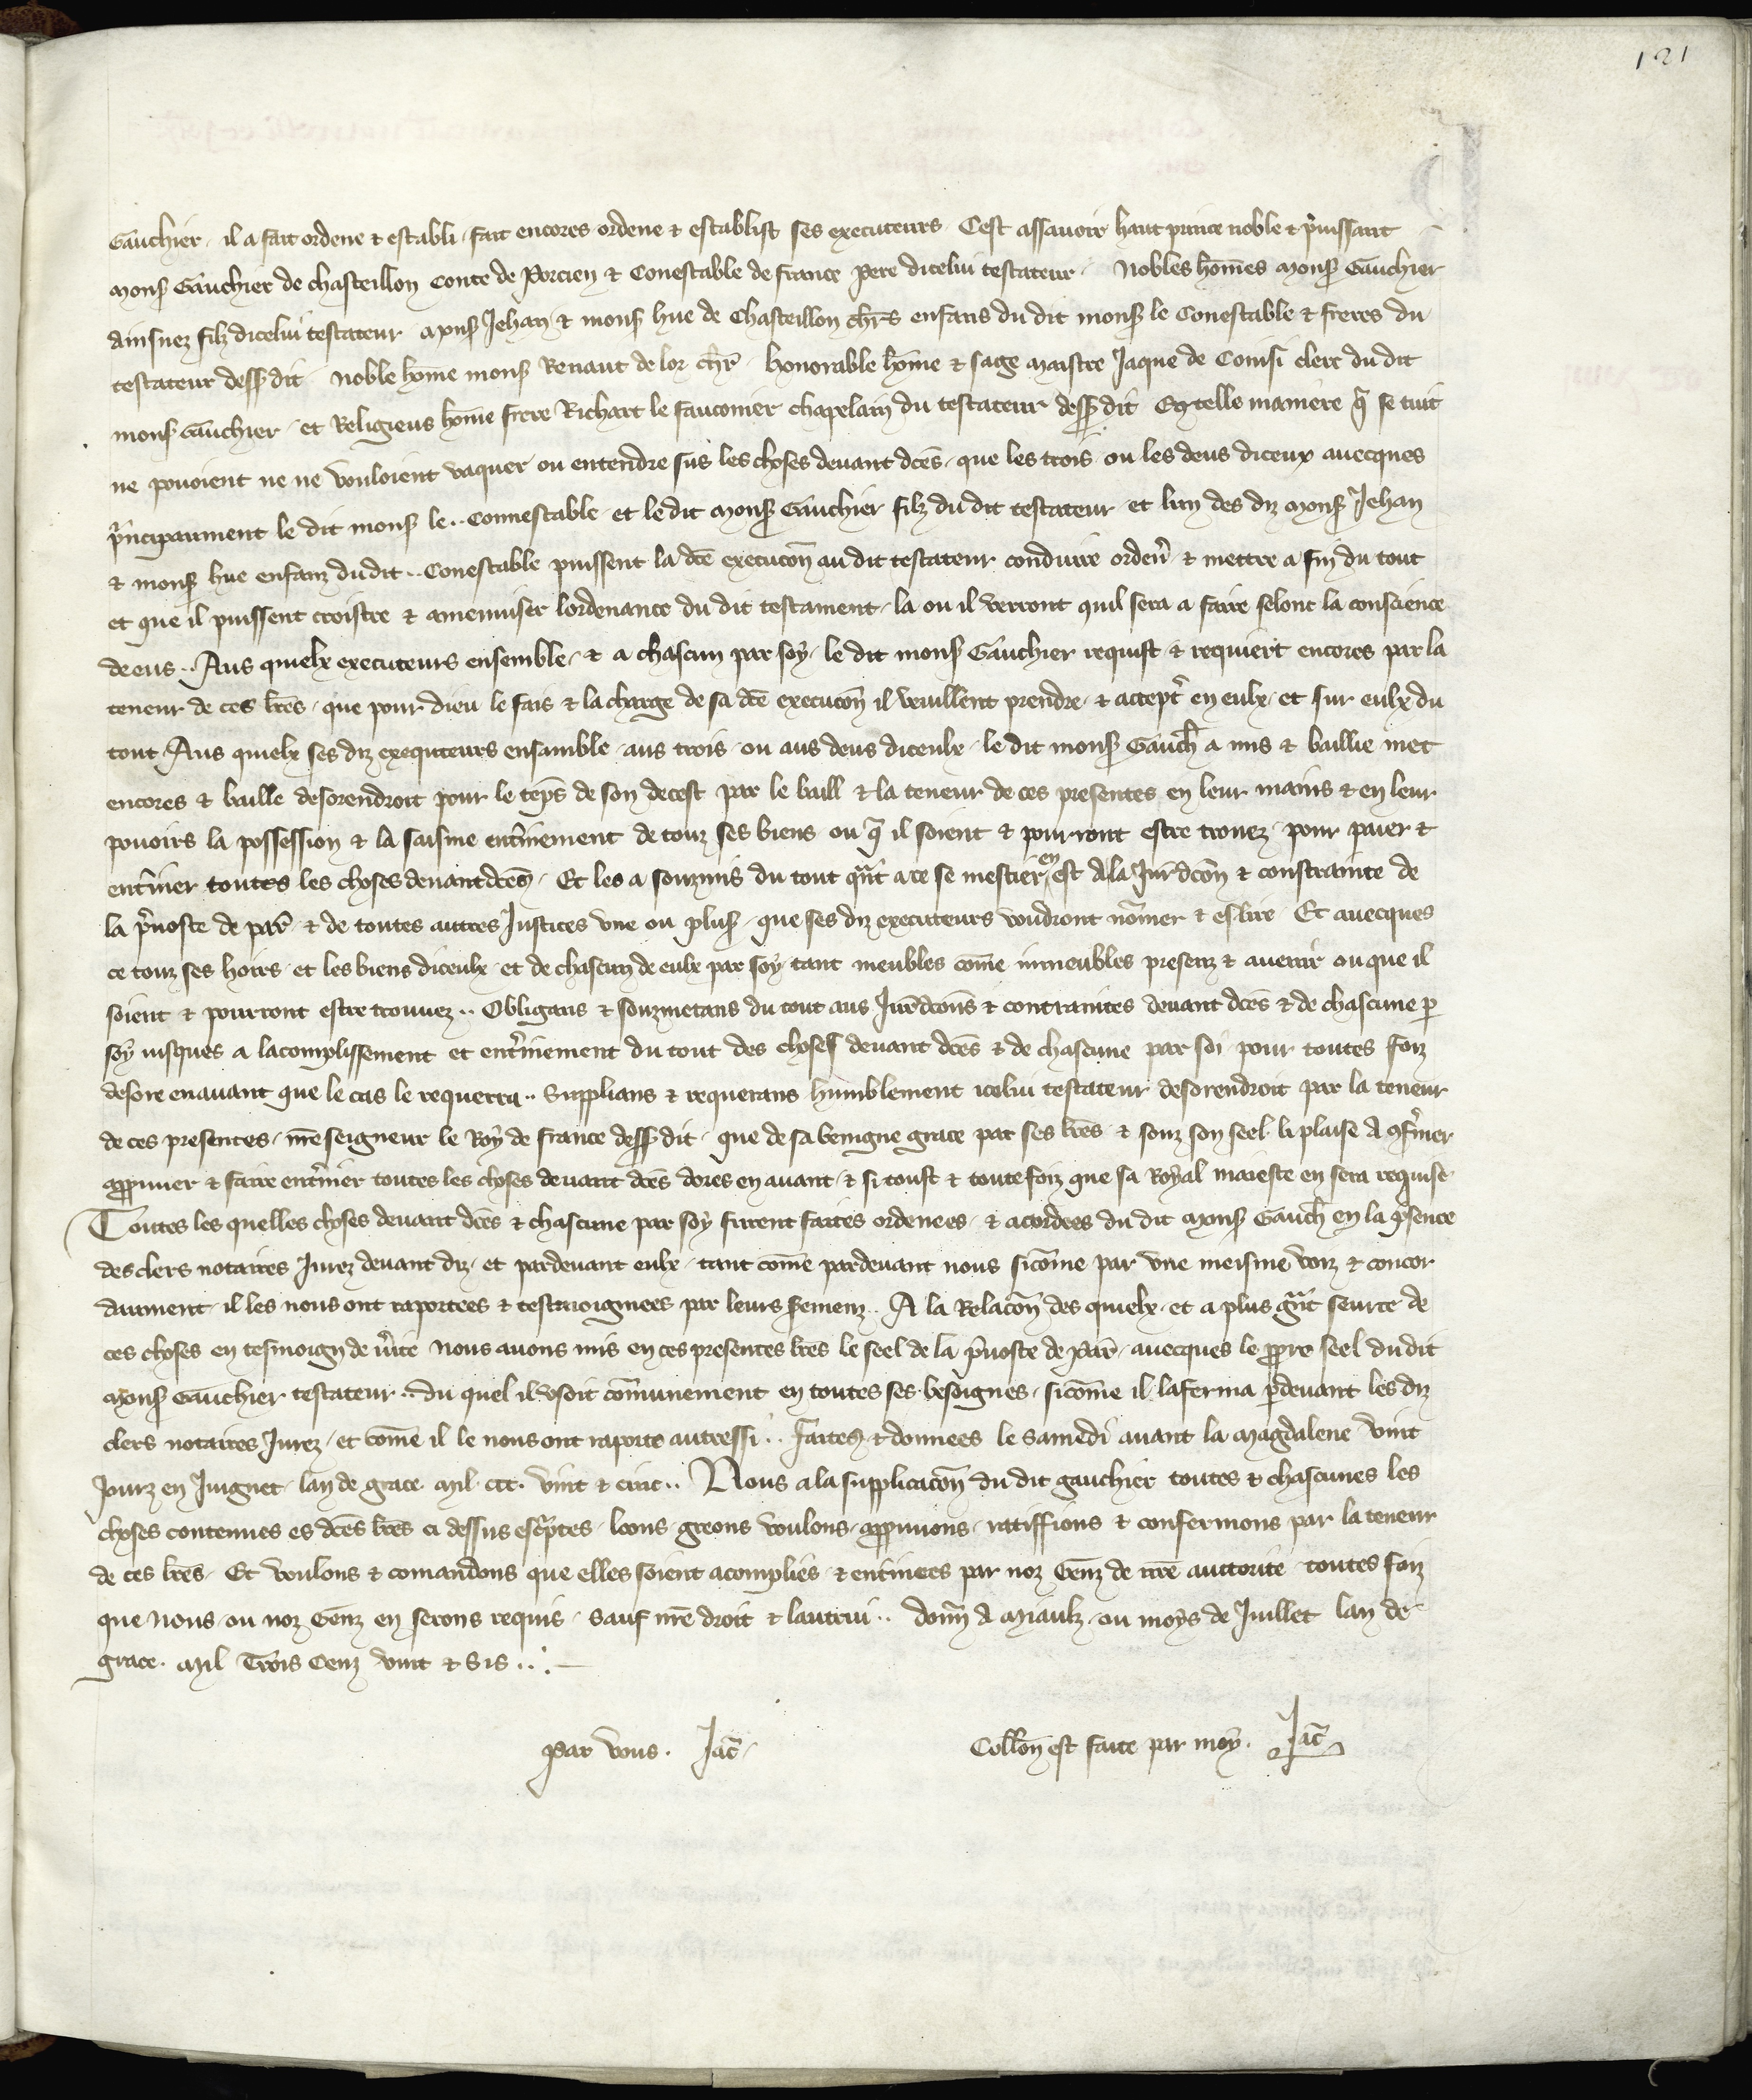 121
Gauchier il a fait ordene & establi fait encores ordene & establist ses executeurs Cest assavoir haut prince noble & puissant
Mons Gauchier de chasteillon Conte de Porcien & Conestable de france Pere dicelui testateur Nobles hom̃es Mons Gauchier
ainsnez filz dicelui testateur Mons Jehan & mons hue de Chasteillon chr̃s enfans du dit mons le Conestable & freres du
testateur dess dit noble hom̃e mons Renaut de lor chr̃ honorable hom̃e & sage maistre Jaque de Comsi clerc du dit
mons Gauchier et Religieus hom̃e frere Richart le fauconier chapelain du testateur dess dit En telle maniere q̃ se tuit
ne povoient ne ne vouloient vaquer ou entendre sus les choses devant dc̃es que les trois ou les deus diceux avecques
pͥncipaument le dit mons le .. Connestable et le dit Mons Gauchier filz du dit testateur et lun des diz Mons Jehan
& mons hue enfanz du dit .. Conestable puissent la dc̃e execucoñ au dit testateur conduire orden̾ & mettre a fin du tout
et que il puissent croistre & amenuiser lordenance du dit testament la ou il verront quil sera a faire selonc la conscience
de eus .. Aus quielx executeurs ensemble & a chascun par soy le dit mons Gauchier requist & requiert encores par la
teneur de ces lr̃es que pour dieu le fais & la charge de sa dc̃e execucoñ il veuillent prendre & accept̾ en eulx et sur eulx du
tout Aus quielx ses diz exequteurs ensamble aus trois ou aus deus diceulx le dit mons Gauch̾ a mis & baillie met
encores & baille desorendroit pour le temp̃s de son decest par le baill & la teneur de ces presentes en leur mains & en leur
povoirs la possession & la saisine ent̾inement de touz ses biens ou q̃ il soient & pourront estre trouez pour paier &
ent̾iner toutes les choses devant dc̃es Et les a souzmis du tout qͣnt a ce se mestier en est A la Jur̃dcoñ & contrainte de
la p̾voste de par̃ & de toutes autres Justices une ou plus que ses diz executeurs voudront nom̃er & eslire Et avecques
ce touz ses hoirs et les biens diceulx et de chascun de eulx par soy tant meubles com̃e inmeubles presenz & avenir ou que il
soient & pourront estre trouvez .. Obligans & souzmetans du tout aus Jur̃dcons & contraintes devant dc̃es & de chascune p
soy jusques a lacomplissement et ent̾inement du tout des choses devant dc̃es & de chascune par soi pour toutes foiz
desore enavant que le cas le requerra .. Supplians & requerans humblement icelui testateur desorendroit par la teneur
de ces presentes nr̃e seigneur le Roy de france dess dit que de sa benigne grace par ses lr̃es & souz son seel li plaise A ꝯfermer
appruver & faire ent̾iner toutes les choses devant dc̃es dores en avant & si toust & toutefoiz que sa Royal maieste en sera requise
Toutes les quelles choses devant dc̃es & chascune par soy furent faites ordenees & acordees du dit Mons Gauch̾ en la p̾sence
des clers notaires Jurez devant diz et pardevant eulx tant com̃e pardevant nous sicom̃e par une meisme voiz & concor
daument il les nous ont raportees & tesmoignees par leurs sermenz .. A la Relacoñ des quielx et a plus gͣnt seurte de
ces choses en tesmoign de v̾ite Nous avons mis en ces presentes lr̃es le seel de la p̾voste de Par̃ avecques le ppre seel du dit
Mons Gauchier testateur .. du quel il usoit com̃unement en toutes ses besoignes sicom̃e il laferma p̱devant les diz
clers notaires Jurez et com̃e il le nous ont raporte autressi .. Faites & donnees le samedi avant la Magdalene vint
Jourz en Juignet lan de grace Mil ccc vint & cinc .. Nous a la supplicacoñ du dit gauchier toutes & chascunes les
choses contenues es dc̃es lr̃es ci dessus escͥptes loons greons voulons appruvons ratiffions & confermons par la teneur
de ces lr̃es Et voulons & comandons que elles soient acomplies & ent̾inees par noz Genz de nr̃e auttorite toutes foiz
que Nous ou noz Genz en serons requis Sauf nr̃e droit & lautrui .. Donn̾ A Miaulz ou moys de Juillet lan de
grace Mil Trois Cenz vint & Sis ...
Par vous. Jac̃
Collon̾ est faite par moy. Jac̃